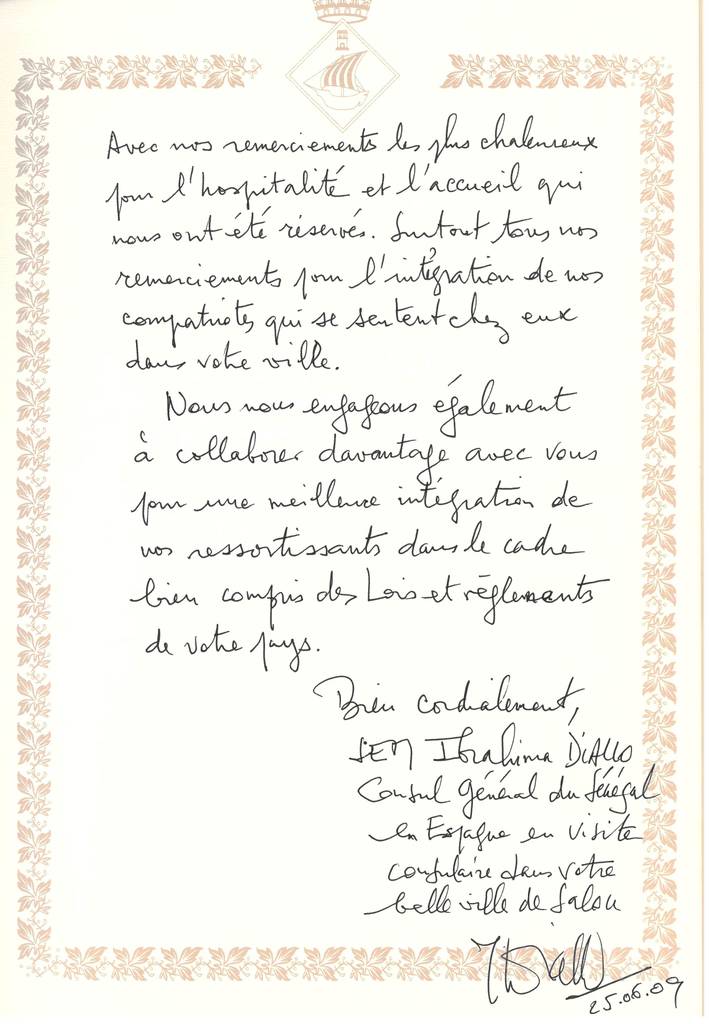 Avec nos remerciements les plus chaleureux
pour l'hospitalité et l'accueil qui
nous ont été réservés. Surtout tous nos
remerciements pour l'intégration de nos
compatriotes qui se sentent chez eux
dans votre ville.
Nous nous engageons également
à collaborer davantage avec vous
pour une meilleure intégration de
nos ressortissants dans le cadre
bien compris des Lois et règlements
de votre pays.
Bien cordialement,
SEM Ibrahima DiALLO
Consul Général du Sénégal
en Espagne en visite
consulaire dans votre
belle ville de Salou
25.06.09